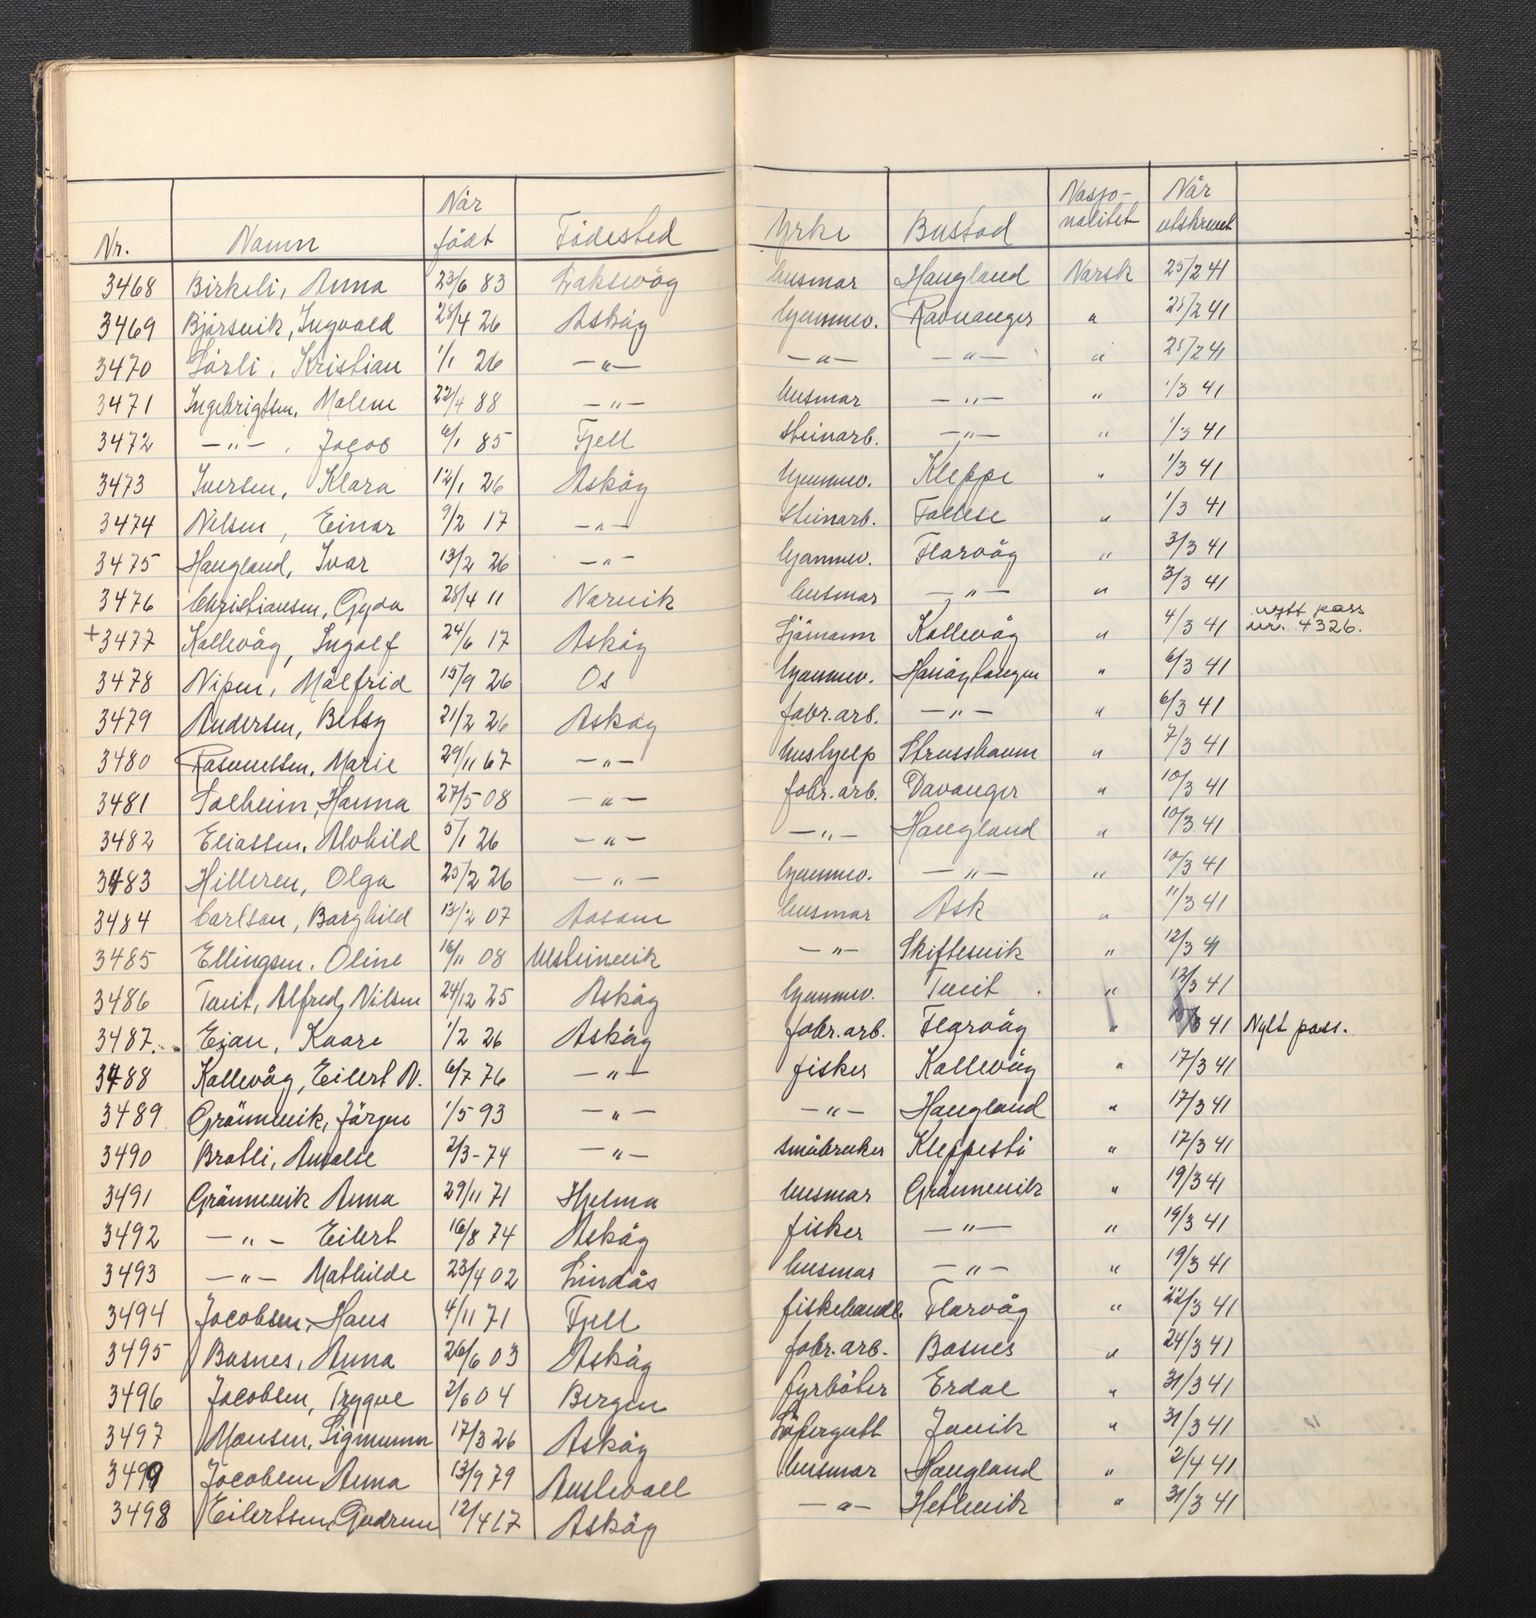 Nr. Namn Når født Fødested Yrke Bustad Nasjo-nalitet Når utskrevet
3468 Birkeli, Anna 23/6 83 Laksevåg husmor Haugland Norsk 25/2 41
3469 Bjørsvik, Ingvald 28/4 26 Askøy hjemmev. Ravnanger " 25/2 41
3470 Sørli, Kristian 1/1 26 —"— —"— —"— " 25/2 41
3471 Ingebrigtsen, Malene 22/4 88 —"— husmor —"— " 1/3 41
3472 —"—, Jacob 6/1 85 Fjell Steinarb. —"— " 1/3 41
3473 Iversen, Klara 12/1 26 Askøy hjemmev. Kleppe " 1/3 41
3474 Nilsen, Einar 9/2 17 —"— Steinarb. Follese " 1/3 41
3475 Haugland, Ivar 13/2 26 —"— hjemmev. Florvåg " 3/3 41
3476 Christiansen, Gyda 28/4 11 Narvik husmor —"— " 3/3 41
+3477 Kollevåg, Ingolf 24/6 17 Askøy Sjømann Kollevåg " 4/3 41 nytt pass nr. 4326.
3478 Nipen, Målfrid 15/9 26 Os hjemmev. Hanøytangen " 6/3 41
3479 Andersen, Betsy 21/2 26 Askøy fabr.arb. —"— " 6/3 41
3480 Rasmussen, Marie 29/11 67 —"— hushjelp Strusshamn " 7/3 41
3481 Solheim, Hanna 27/5 08 —"— fabr.arb. Davanger " 10/3 41
3482 Eliassen, Alvhild 5/1 26 —"— —"— Haugland " 10/3 41
3483 Hilleren, Olga 25/2 26 —"— hjemmev. —"— " 10/3 41
3484 Carlson, Borghild 13/2 07 husmor Ask " 11/3 41
3485 Ellingsen, Oline 16/11 08 —"— Skiftesvik " 12/3 41
3486 Tveit, Alfred Nilsen 24/12 25 Askøy hjemmev. Tveit " 13/3 41
3487. Ejan, Kaare 1/2 26 Askøy fabr.arb. Florvåg " 41 Nytt pass.
3488 Kollevåg, Eilert N. 6/7 76 —"— fisker Kollevåg " 17/3 41
3489 Grønnevik, Jørgen 1/5 93 —"— —"— Haugland " 17/3 41
3490 Bratli, Ansalie 2/3-74 —"— småbruker Kleppestø " 17/3 41
3491 Grønnevik Anna 29/11 71 Hjelma husmor Grønnevik " 19/3 41
3492 —"— Eilert 16/8 74 Askøy fisker —"— " 19/3 41
3493 —"— Mathilde 23/4 02 Lindås husmor —"— " 19/3 41
3494 Jacobsen, Hans 4/11 71 Fjell fiskehandl. Florvåg " 22/3 41
3495 Basnes, Anna 26/6 03 Askøy fabr.arb. Basnes " 24/3 41
3496 Jacobsen, Trygve 2/6 04 Bergen fyrbøter Erdal " 31/3 41
3497 Monsen, Sigmunn 17/3 26 Askøy Løpergutt Juvik " 31/3 41
3499 Jacobsen Anna 13/9 79 Austevoll husmor Haugland " 2/4 41
3498 Eilertsen, Gudrun 12/4 17 Askøy —"— Hetlevik " 31/3 41